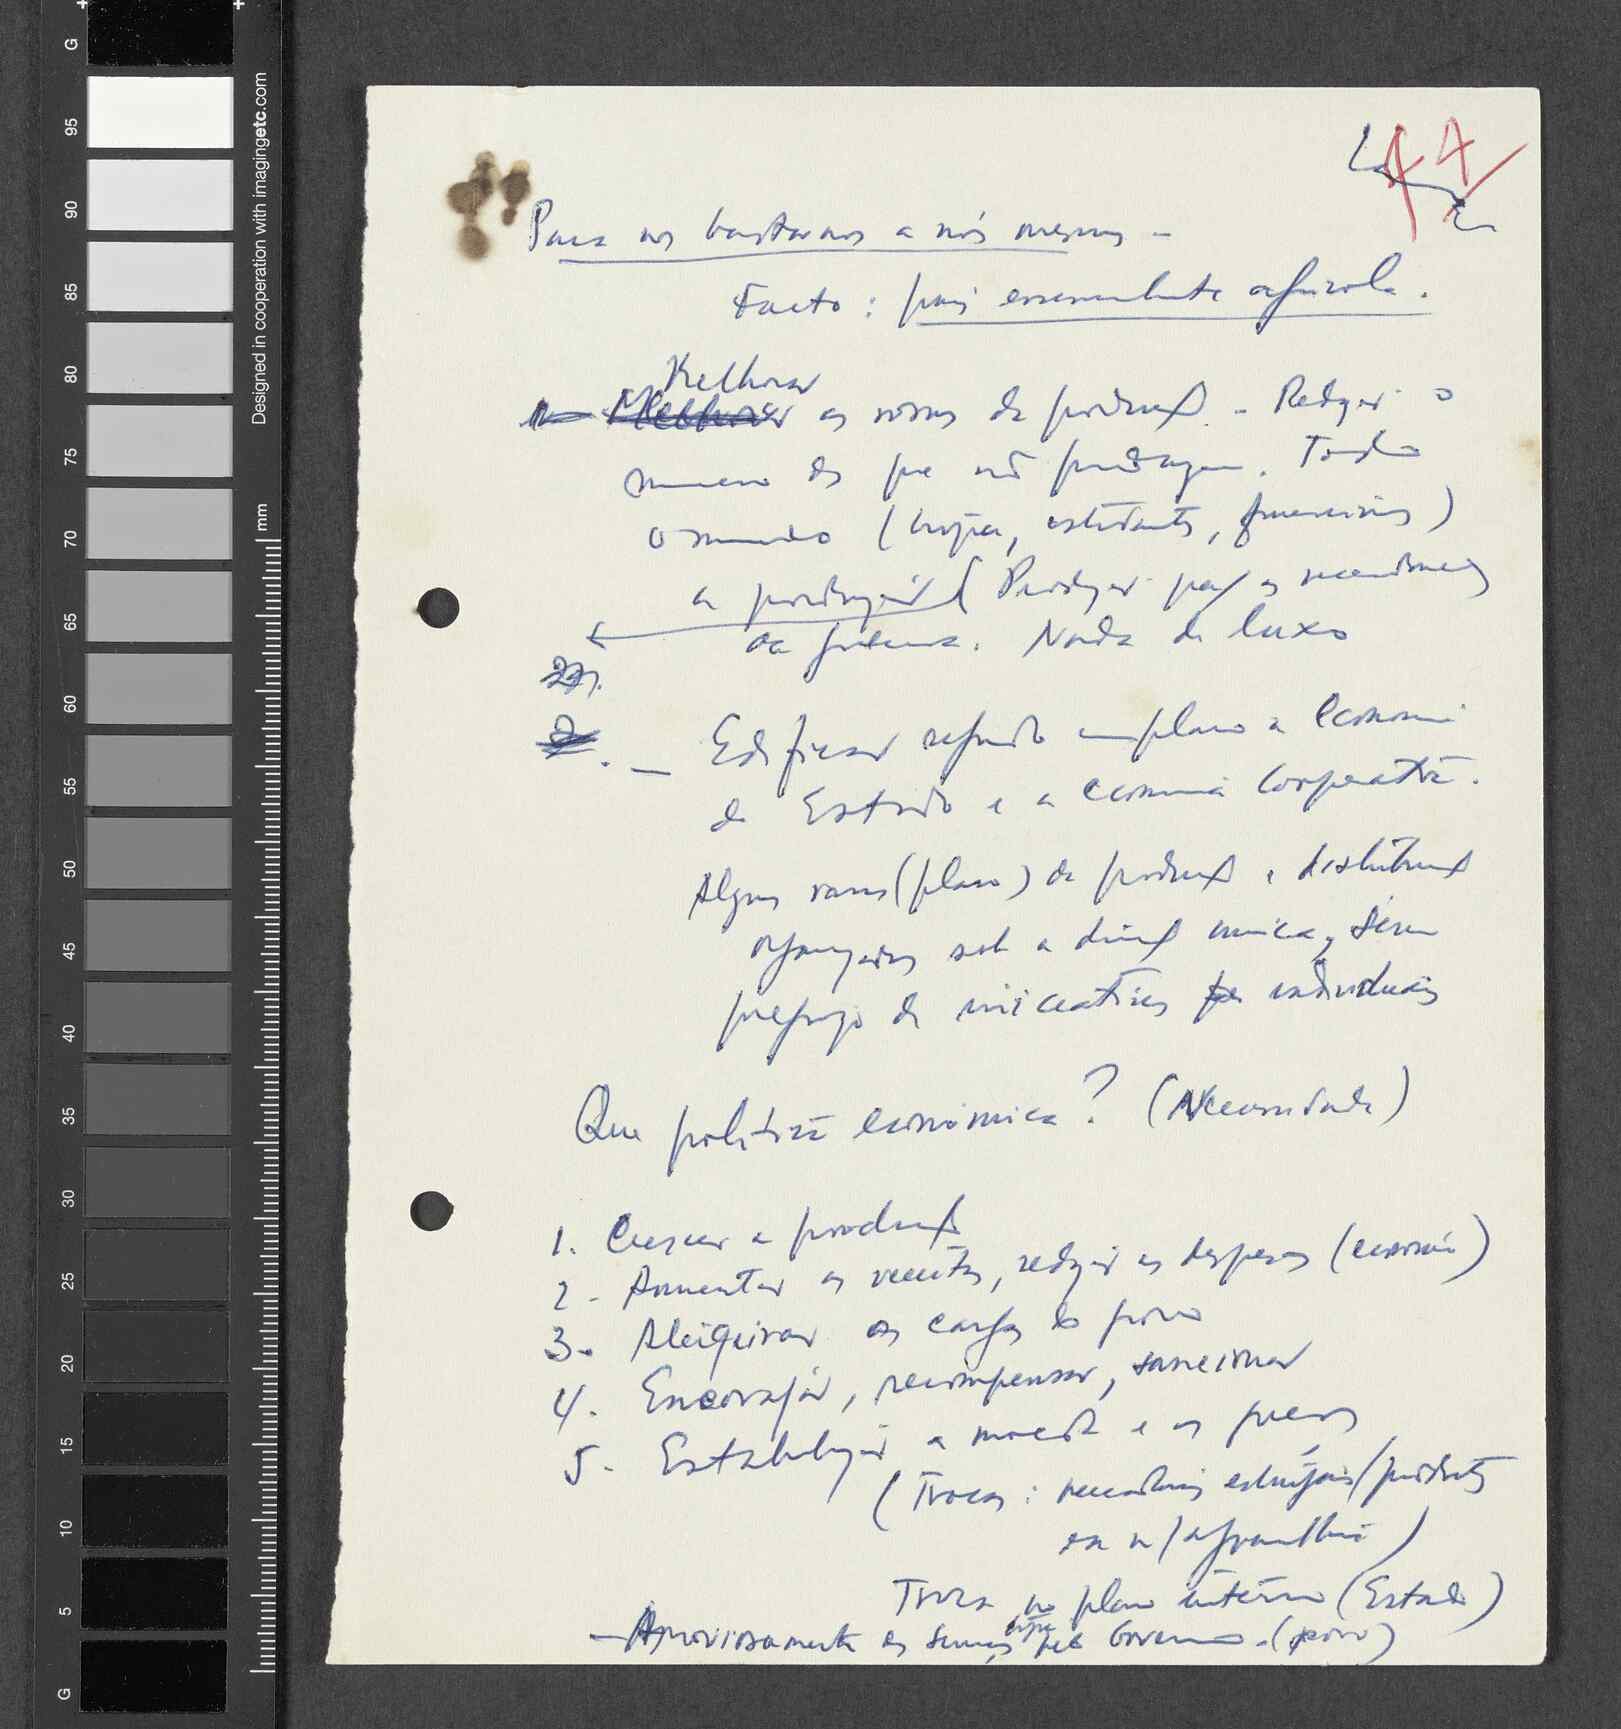 44
Para nos bastarmos a nós mesmos -
Facto : país essencialmente agrícola.
Melhorar
Melhorar as nossas de produção. - Reduzir o
numero dos que não produzem. Todo
o mundo (tropa, estudantes, funcionários)
a produzir ( Produzir para as necessidades
da guerra. Nada de luxo
2.
- Edificar segundo um plano a Economia
do Estado e a economia Cooperativa.
Alguns ramos (plano) de produção e distribuição
organizados sob a direção única, sem
prejuizo de iniciativas individuais
Que política económica? (Necessidade)
1. Crescer a produção
2. Aumentar as receitas, reduzir as despesas (economia)
3. Aleigeirar as cargas do povo
4. Encorajar, recompensar, sancionar
5. Estabilizar a moeda e os preços
(Trocas : mercadorias estrangeiras/produtos
da n/agricultura)
Troca no plano interno (Estado)
- Aprovisionamento pelo Governo - (povo)
G
95
90
85
80
75
70
65
60
55
50
45
40
35
30
25
20
15
10
5
G
mm
Designed in cooperation with imagingetc.com